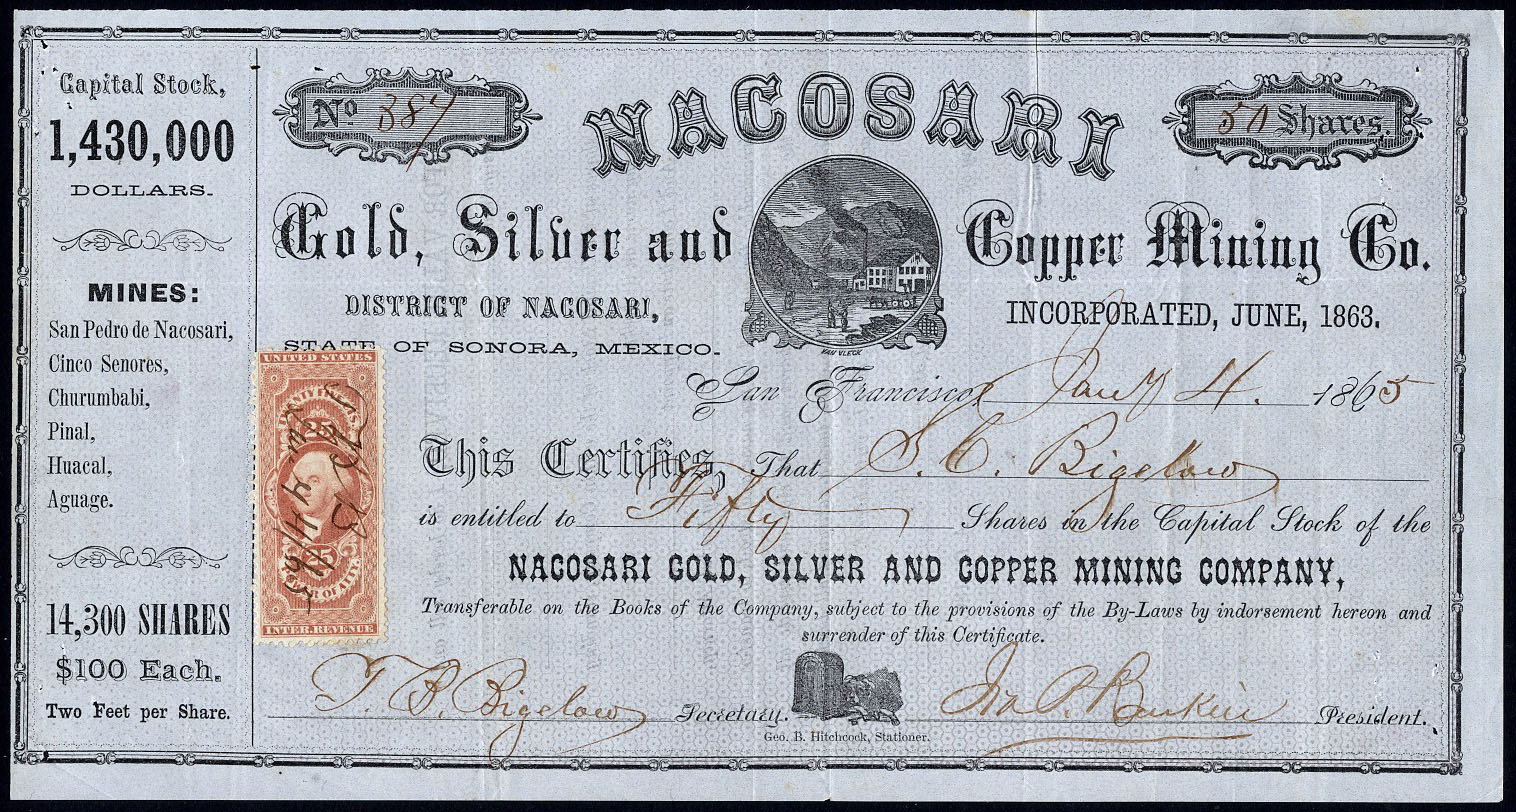 Capital Stock,
1,430,000
DOLLARS.
MINES:
San Pedro de Nacosari,
Cinco Senores,
Churumbabi,
Pinal,
Huacal,
Aguage.
14,300 SHARES
$100 Each.
Two Feet per Share.
No 387
NACOSARI
50 Shares.
Gold, Silver and Copper Mining Co.
DISTRICT OF NACOSARI,
STATE OF SONORA, MEXICO.
INCORPORATED, JUNE, 1863.
VAN VLECK
San Francisco, Jany 4. 1865
This Certifies, That S. C. Bigelow
is entitled to Fifty Shares in the Capital Stock of the
NACOSARI GOLD, SILVER AND COPPER MINING COMPANY,
Transferable on the Books of the Company, subject to the provisions of the By-Laws by indorsement hereon and
surrender of this Certificate.
T. B. Bigelow Secretary.
Ira P. Rankin President.
Geo. B. Hitchcock, Stationer.
UNITED STATES
25
25
INTER. REVENUE